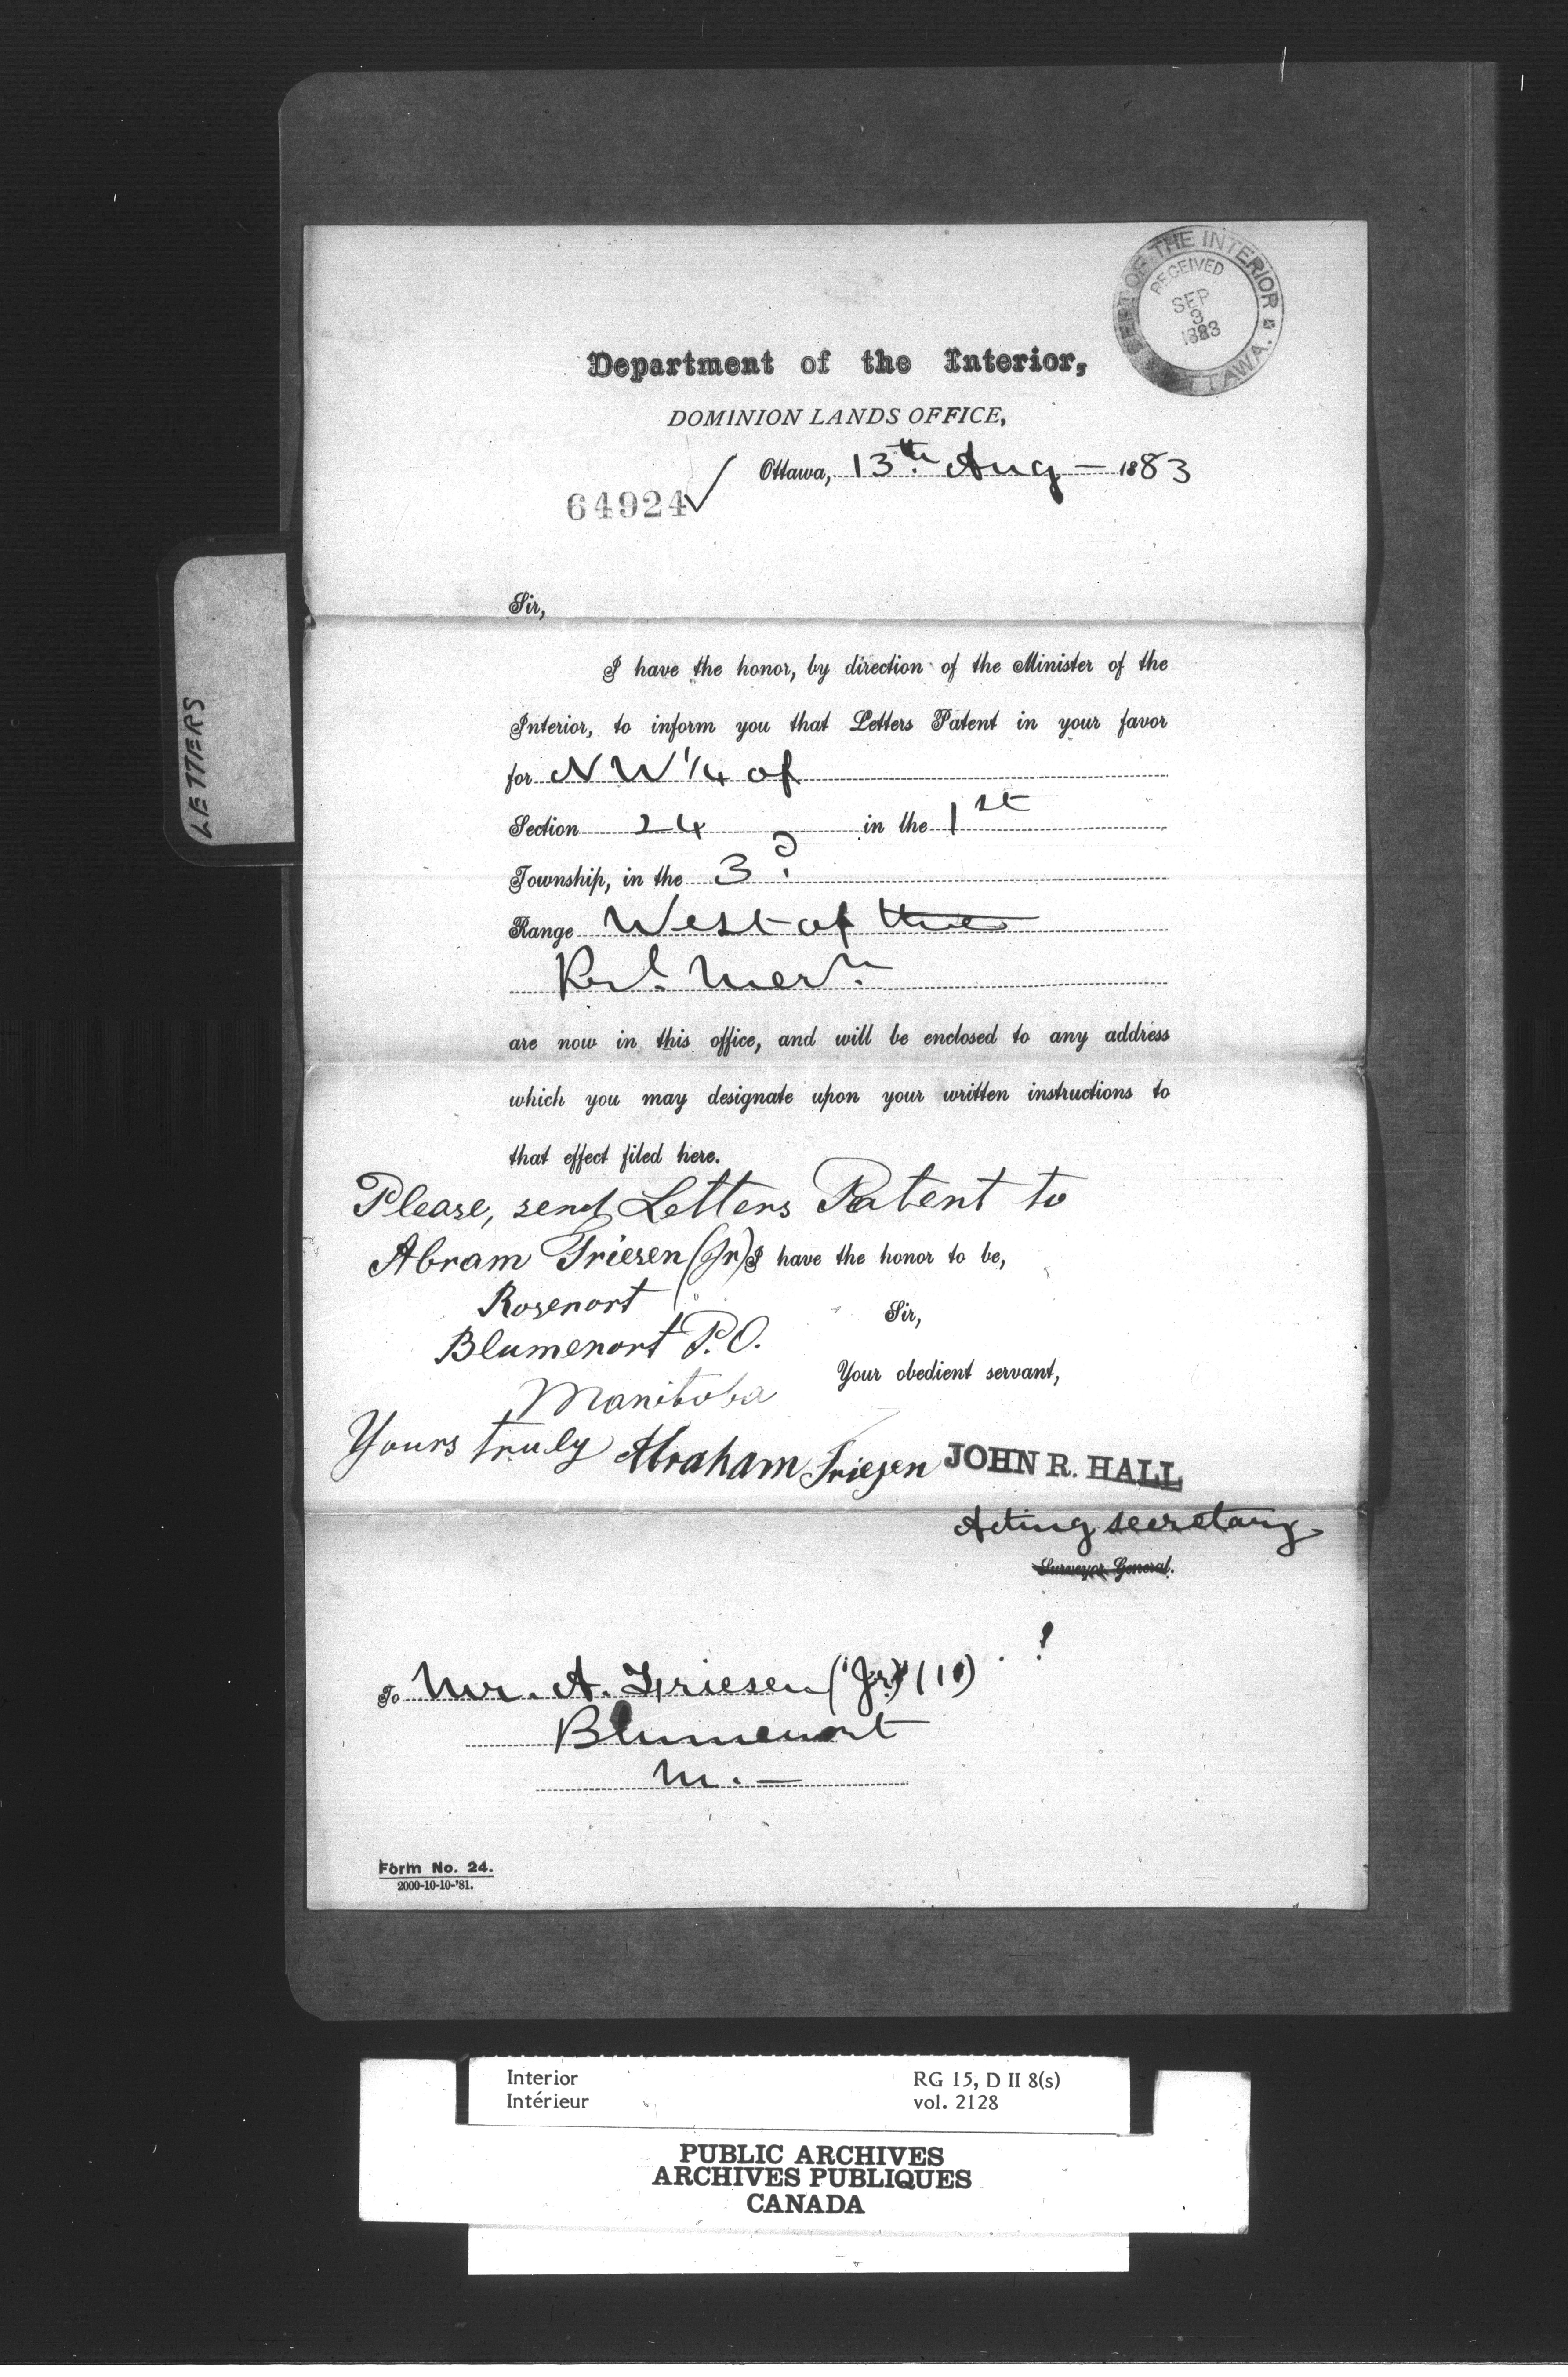 DEPT OF THE INTERIOR
OTTAWA.
RECEIVED
SEP
3
1883
Department of the Interior,
DOMINION LANDS OFFICE,
Ottawa, 13th. Aug — 1883
64924✓
LETTERS
Sir,
I have the honor, by direction of the Minister of the
Interior, to inform you that Letters Patent in your favor
for N W 1/4 of
Section 24 in the 1st
Township, in the 3d.
Range West of the
Pr'l. Mer'n.
are now in this office, and will be enclosed to any address
which you may designate upon your written instructions to
that effect filed here.
Please, send Letters Patent to
Abram Friesen (Jr) I have the honor to be,
Rosenort
Sir,
Blumenort P.O.
Your obedient servant,
Manitoba
Yours truly Abraham Friesen JOHN R. HALL
Acting secretary
Surveyor General.
To Mr. A. Friesen (Jr.) (11)
Blumenort
M. —
Form No. 24.
2000-10-10-'81.
Interior RG 15, D II 8(s)
Intérieur vol. 2128
PUBLIC ARCHIVES
ARCHIVES PUBLIQUES
CANADA